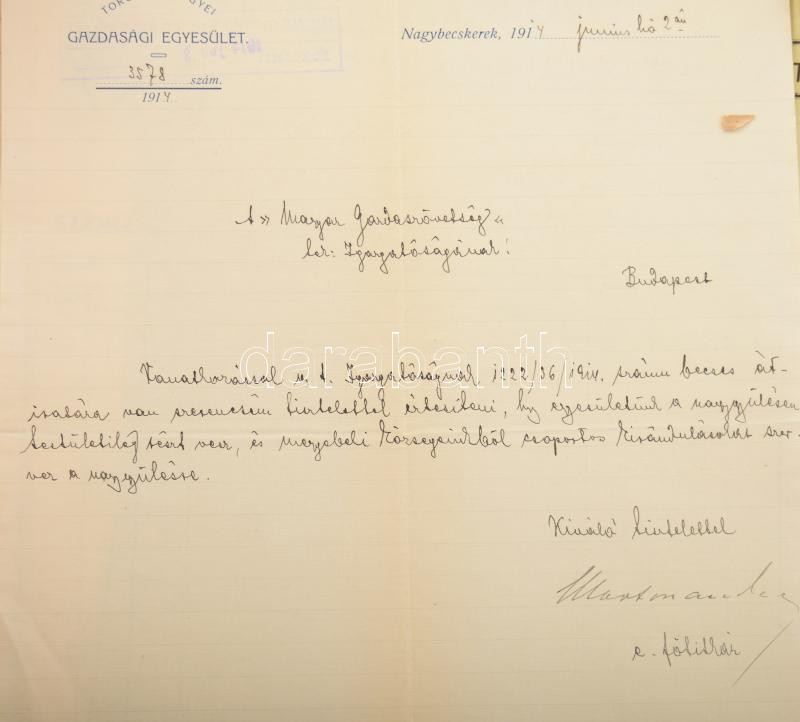 GAZDASÁGI EGYESÜLET.
Nagybecskerek, 1914 junius hó 2án
3578 szám.
1914
A » Magyar Gazdaszövetség «
tek: Igazgatóságának!
Budapest
darabanth
Vonatkozással a t. Igazgatóságnak 1222/36/1914. számu becses át-
iratára van szerencsém tisztelettel értesíteni, hogy egyesületünk a nagygyülésen
testületileg részt vesz, és megyebeli községeinkből csoportos kirándulásokat szer-
vez a nagygyülésre.
Kiváló tisztelettel
e. főtitkár